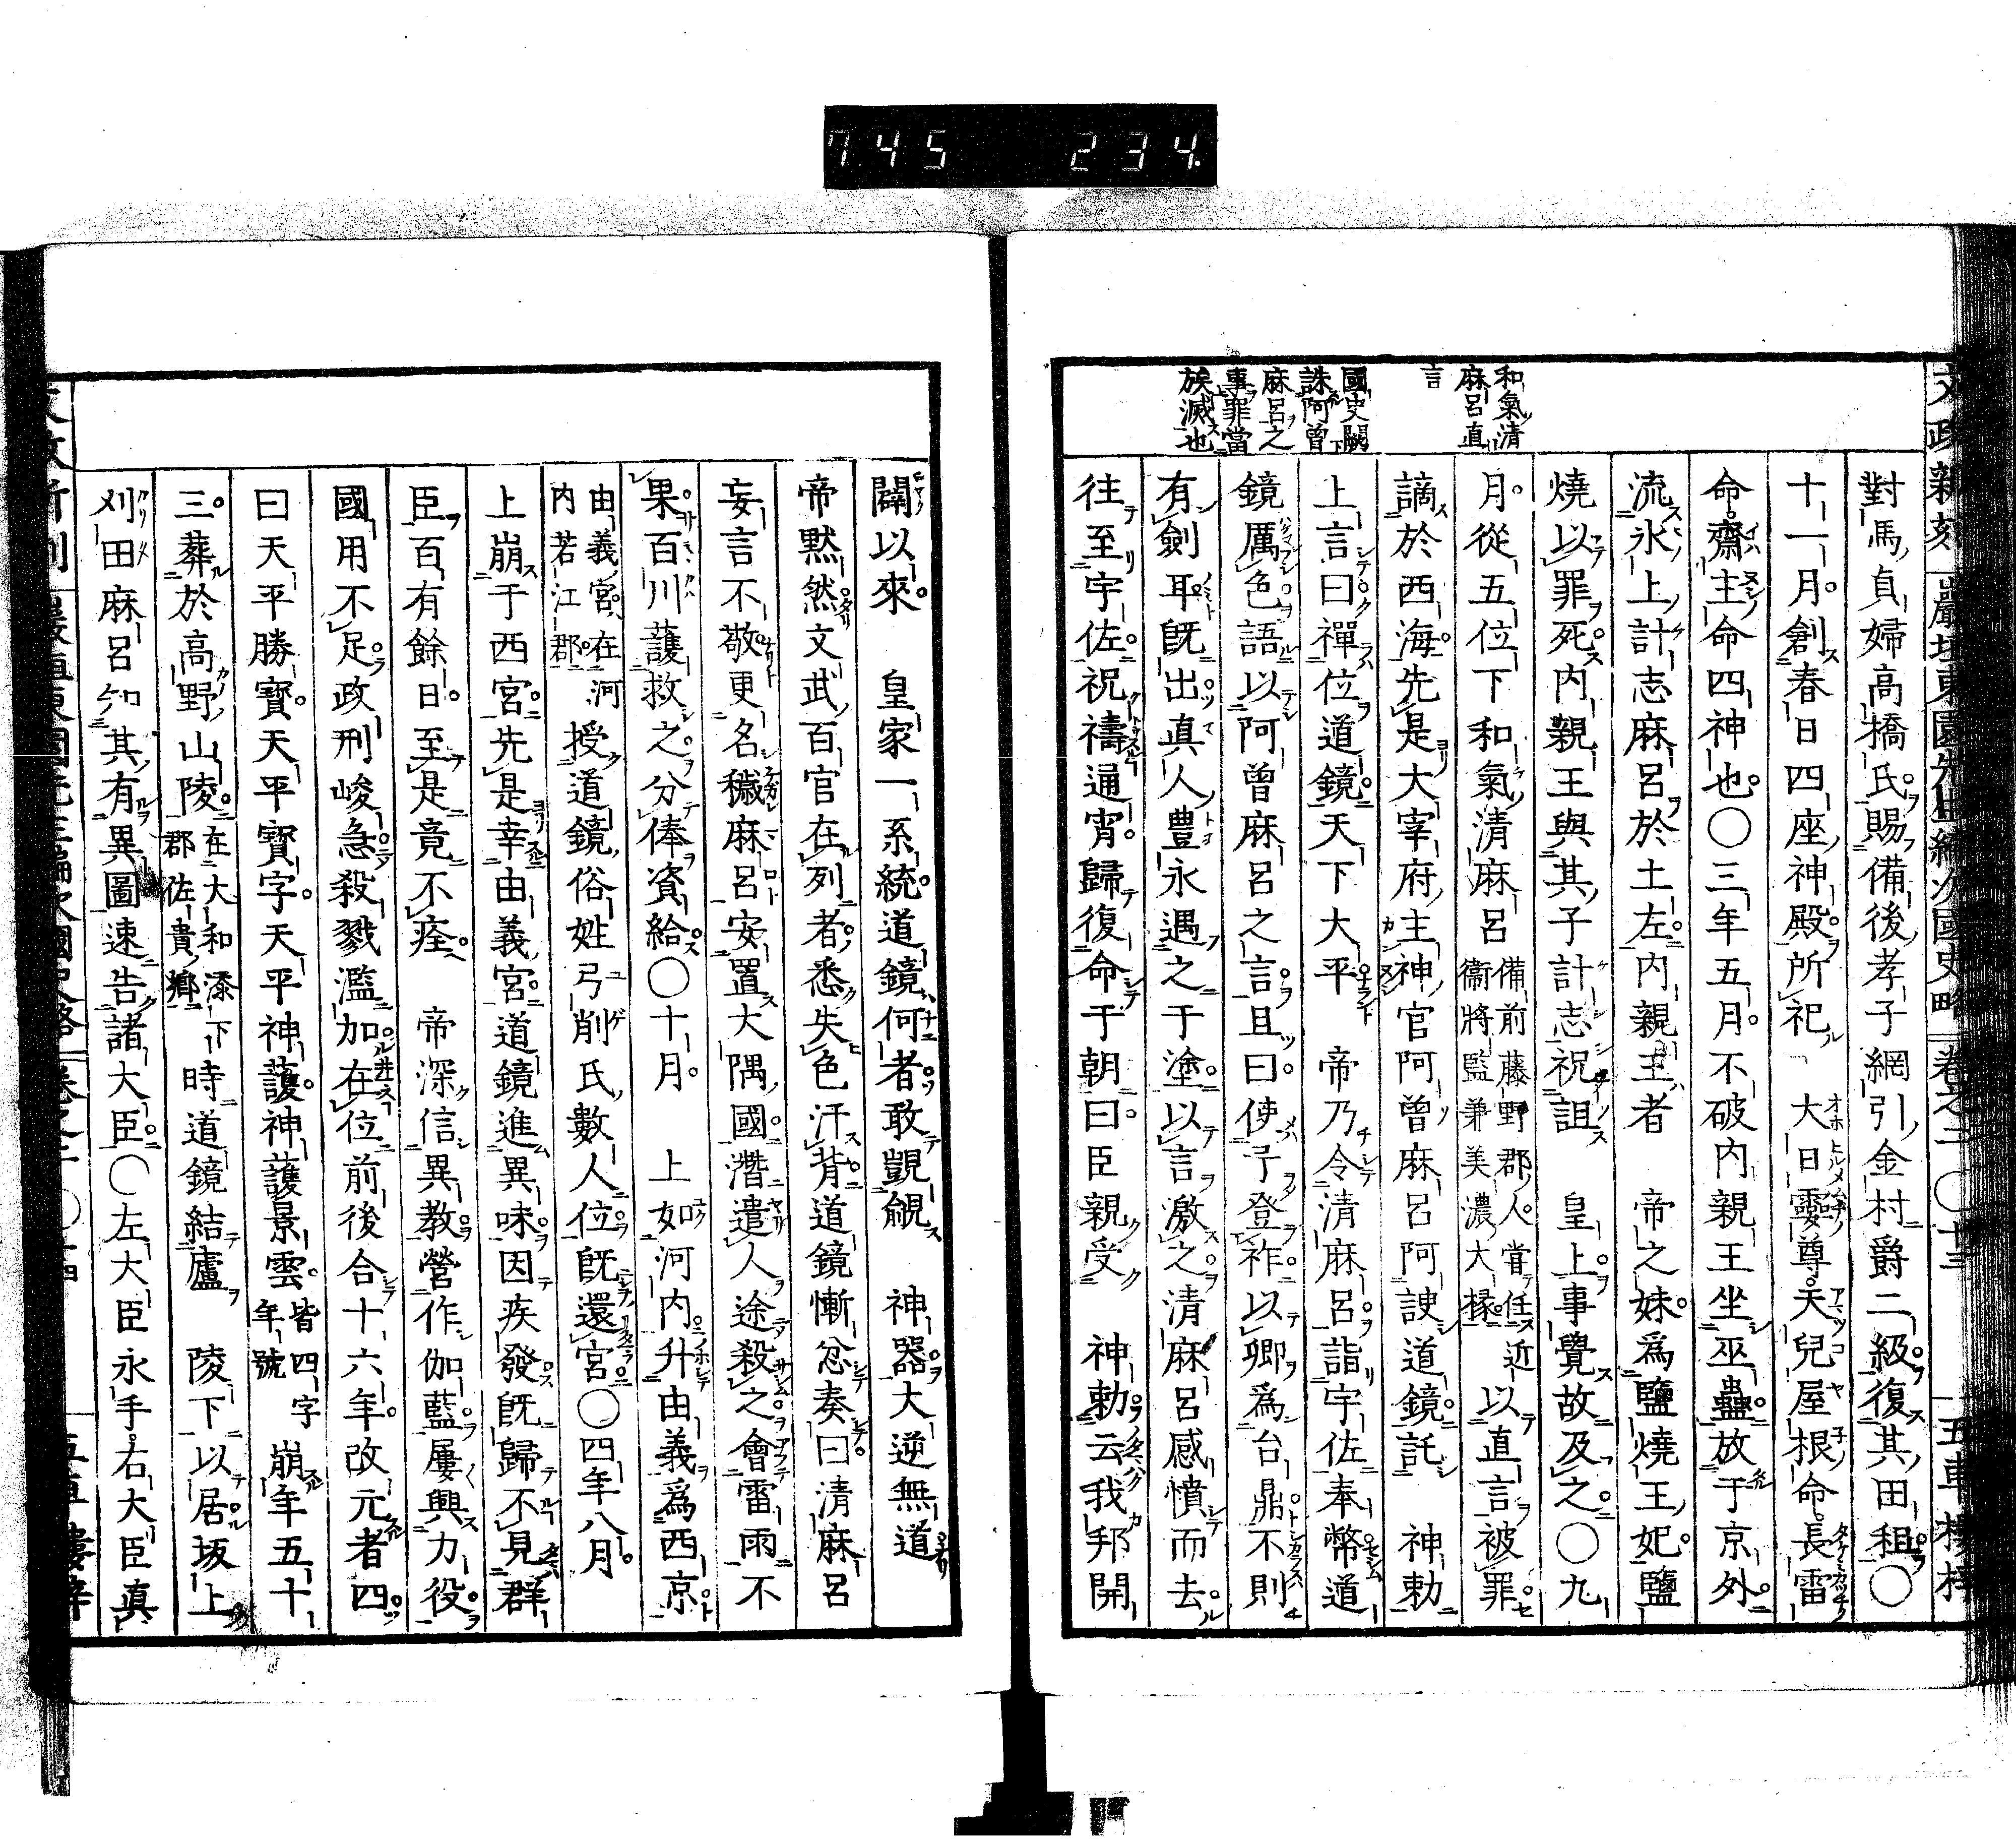 745 234.
和氣清
麻呂直
言
國史闕
誅阿曾
麻呂之
事罪當
族滅也
對馬貞婦高橋氏賜備後孝子網引金村爵二級復其田租○
十一月創春日四座神殿所祀大日孁尊天兒屋根命長雷
命齋主命四神也○三年五月不破內親王坐巫蠱放于京外
流氷上計志麻呂於土左內親王者 帝之妹爲鹽燒王妃鹽
燒以罪死內親王與其子計志祝詛 皇上事覺故及之○九
月從五位下和氣清麻呂備前藤野郡人甞任近衞將監兼美濃大掾以直言被罪
謫於西海先是大宰府主神官阿曾麻呂阿諛道鏡託 神勅
上言曰禪位道鏡天下大平 帝乃令清麻呂詣宇佐奉幣道
鏡厲色語以阿曾麻呂之言且曰使予登祚以卿爲台鼎不則
有劍耳既出真人豊永遇之于塗以言激之清麻呂感憤而去
往至宇佐祝禱通宵歸復命于朝曰臣親受 神勅云我邦開
闢以來 皇家一系統道鏡何者敢覬覦 神器大逆無道
帝黙然文武百官在列者悉失色汗背道鏡慚忿奏曰清麻呂
妄言不敬更名穢麻呂安置大隅國潛遣人途殺之會雷雨不
果百川護救之分俸資給○十月 上如河內升由義爲西京
由義宮在河內若江郡授道鏡俗姓弓削氏數人位既還宮○四年八月
上崩于西宮先是幸由義宮道鏡進異味因疾發既歸不見群
臣百有餘日至是竟不痊 帝深信異教營作伽藍屢興力役
國用不足政刑峻急殺戮濫加在位前後合十六年改元者四
曰天平勝寶天平寶字天平神護神護景雲皆四字年號崩年五十
三葬於高野山陵在大和添下郡佐貴鄉時道鏡結廬 陵下以居坂上
刈田麻呂知其有異圖速告諸大臣○左大臣永手右大臣真